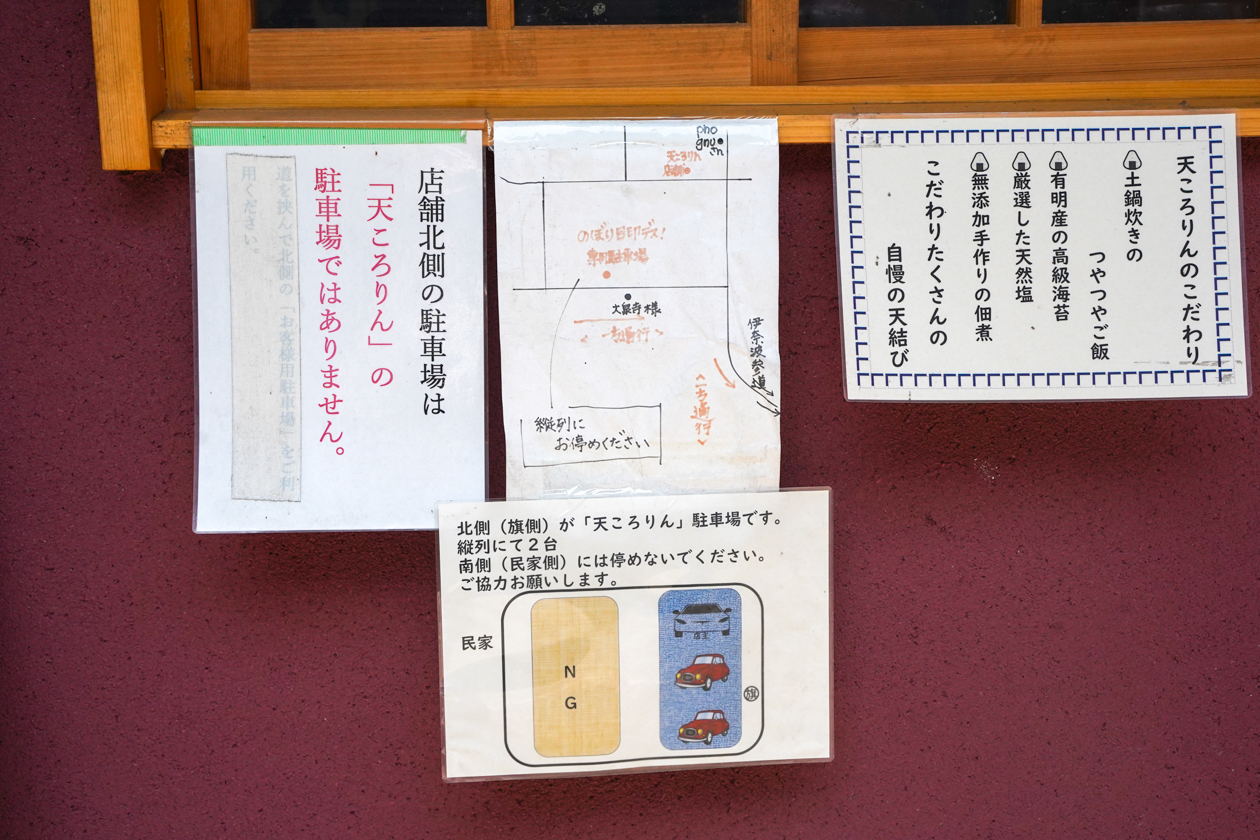 店舗北側の駐車場は
「天ころりん」の
駐車場ではありません。
道を挟んで北側の「お客様用駐車場」をご利
用ください。
天ころりん
店舗
のぼり目印デス!
専用駐車場
大泉寺様
一方通行
伊奈波参道
一方通行
縦列に
お停めください
天ころりんのこだわり
土鍋炊きの
つやつやご飯
有明産の高級海苔
厳選した天然塩
無添加手作りの佃煮
こだわりたくさんの
自慢の天結び
北側(旗側)が「天ころりん」駐車場です。
縦列にて2台
南側(民家側)には停めないでください。
ご協力お願いします。
民家
N
G
店主
旗